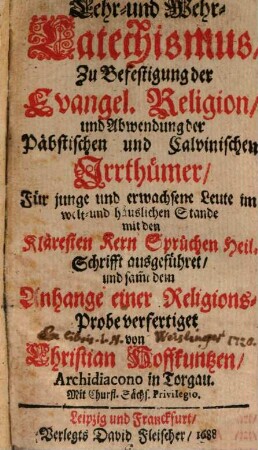 Lehr-und Wehr-
Catechismus/
Zu Befestigung der
Evangel. Religion/
und Abwendung der
Päbstischen und Calvinischen
Irrthümer/
Für junge und erwachsene Leute im
welt-und häuslichen Stande
mit den
Klåresten Kern Sprüchen Heil.
Schrifft ausgeführet/
und sam̃t dem
Anhange einer Religions-
Probe verfertiget
von
Christian Hoffkuntzen/
Archidiacono in Torgau.
Mit Churfl. Sächs. Privilegio.
Leipzig und Franckfurt/
Verlegts David Fleischer/ 1688